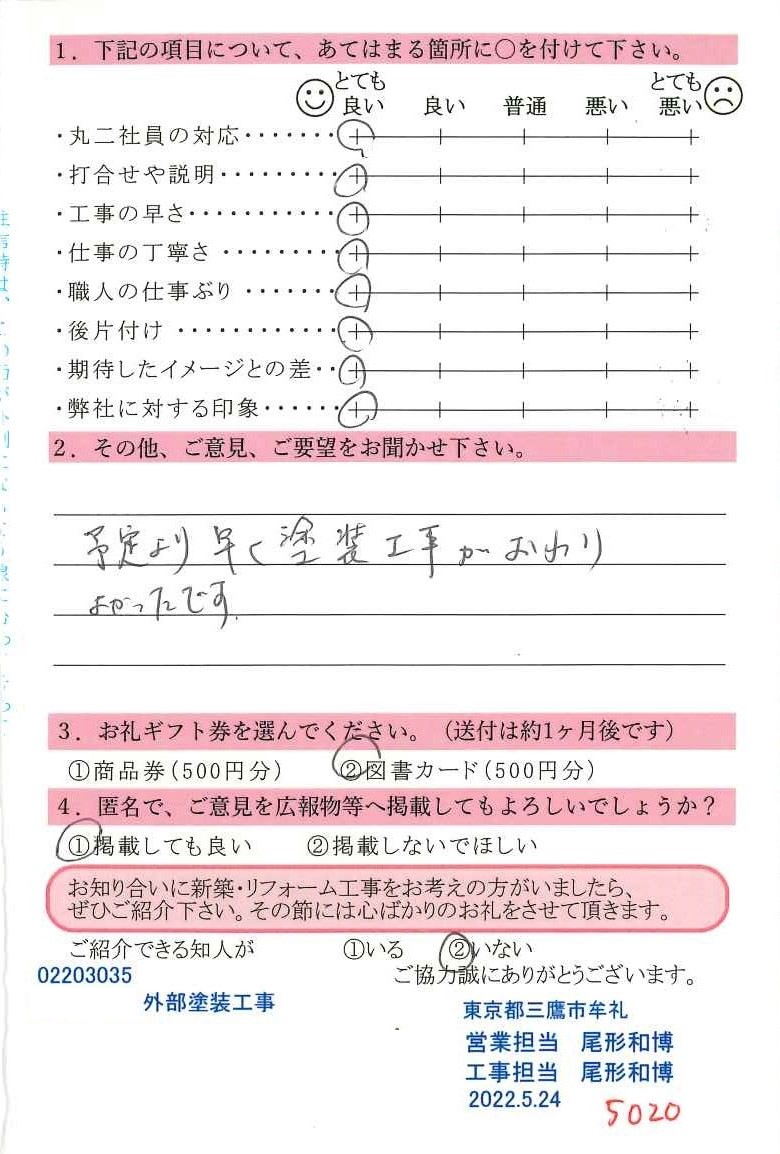 1. 下記の項目について、あてはまる箇所に○を付けて下さい。
とても良い 良い 普通 悪い とても悪い
・丸二社員の対応・・・・・・・
・打合せや説明・・・・・・・・・
・工事の早さ・・・・・・・・・・・
・仕事の丁寧さ ・・・・・・・・・
・職人の仕事ぶり ・・・・・・・
・後片付け ・・・・・・・・・・・・
・期待したイメージとの差・・
・弊社に対する印象・・・・・・
2. その他、ご意見、ご要望をお聞かせ下さい。
予定より早く塗装工事がおわり
よかったです.
3. お礼ギフト券を選んでください。(送付は約1ヶ月後です)
①商品券(500円分) ②図書カード(500円分)
4. 匿名で、ご意見を広報物等へ掲載してもよろしいでしょうか？
①掲載しても良い ②掲載しないでほしい
お知り合いに新築・リフォーム工事をお考えの方がいましたら、
ぜひご紹介下さい。その節には心ばかりのお礼をさせて頂きます。
ご紹介できる知人が ①いる ②いない
ご協力誠にありがとうございます。
02203035
外部塗装工事
東京都三鷹市牟礼
営業担当 尾形和博
工事担当 尾形和博
2022.5.24
5020